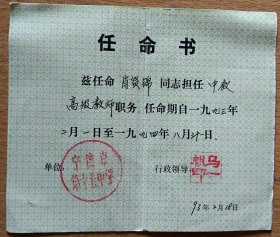 任命书
兹任命 肖贤瑞 同志担任 中教
高级教师 职务，任命期自一九九三年
二月一日至一九九四年八月卅一日。
单位：
行政领导：
93年2月18日